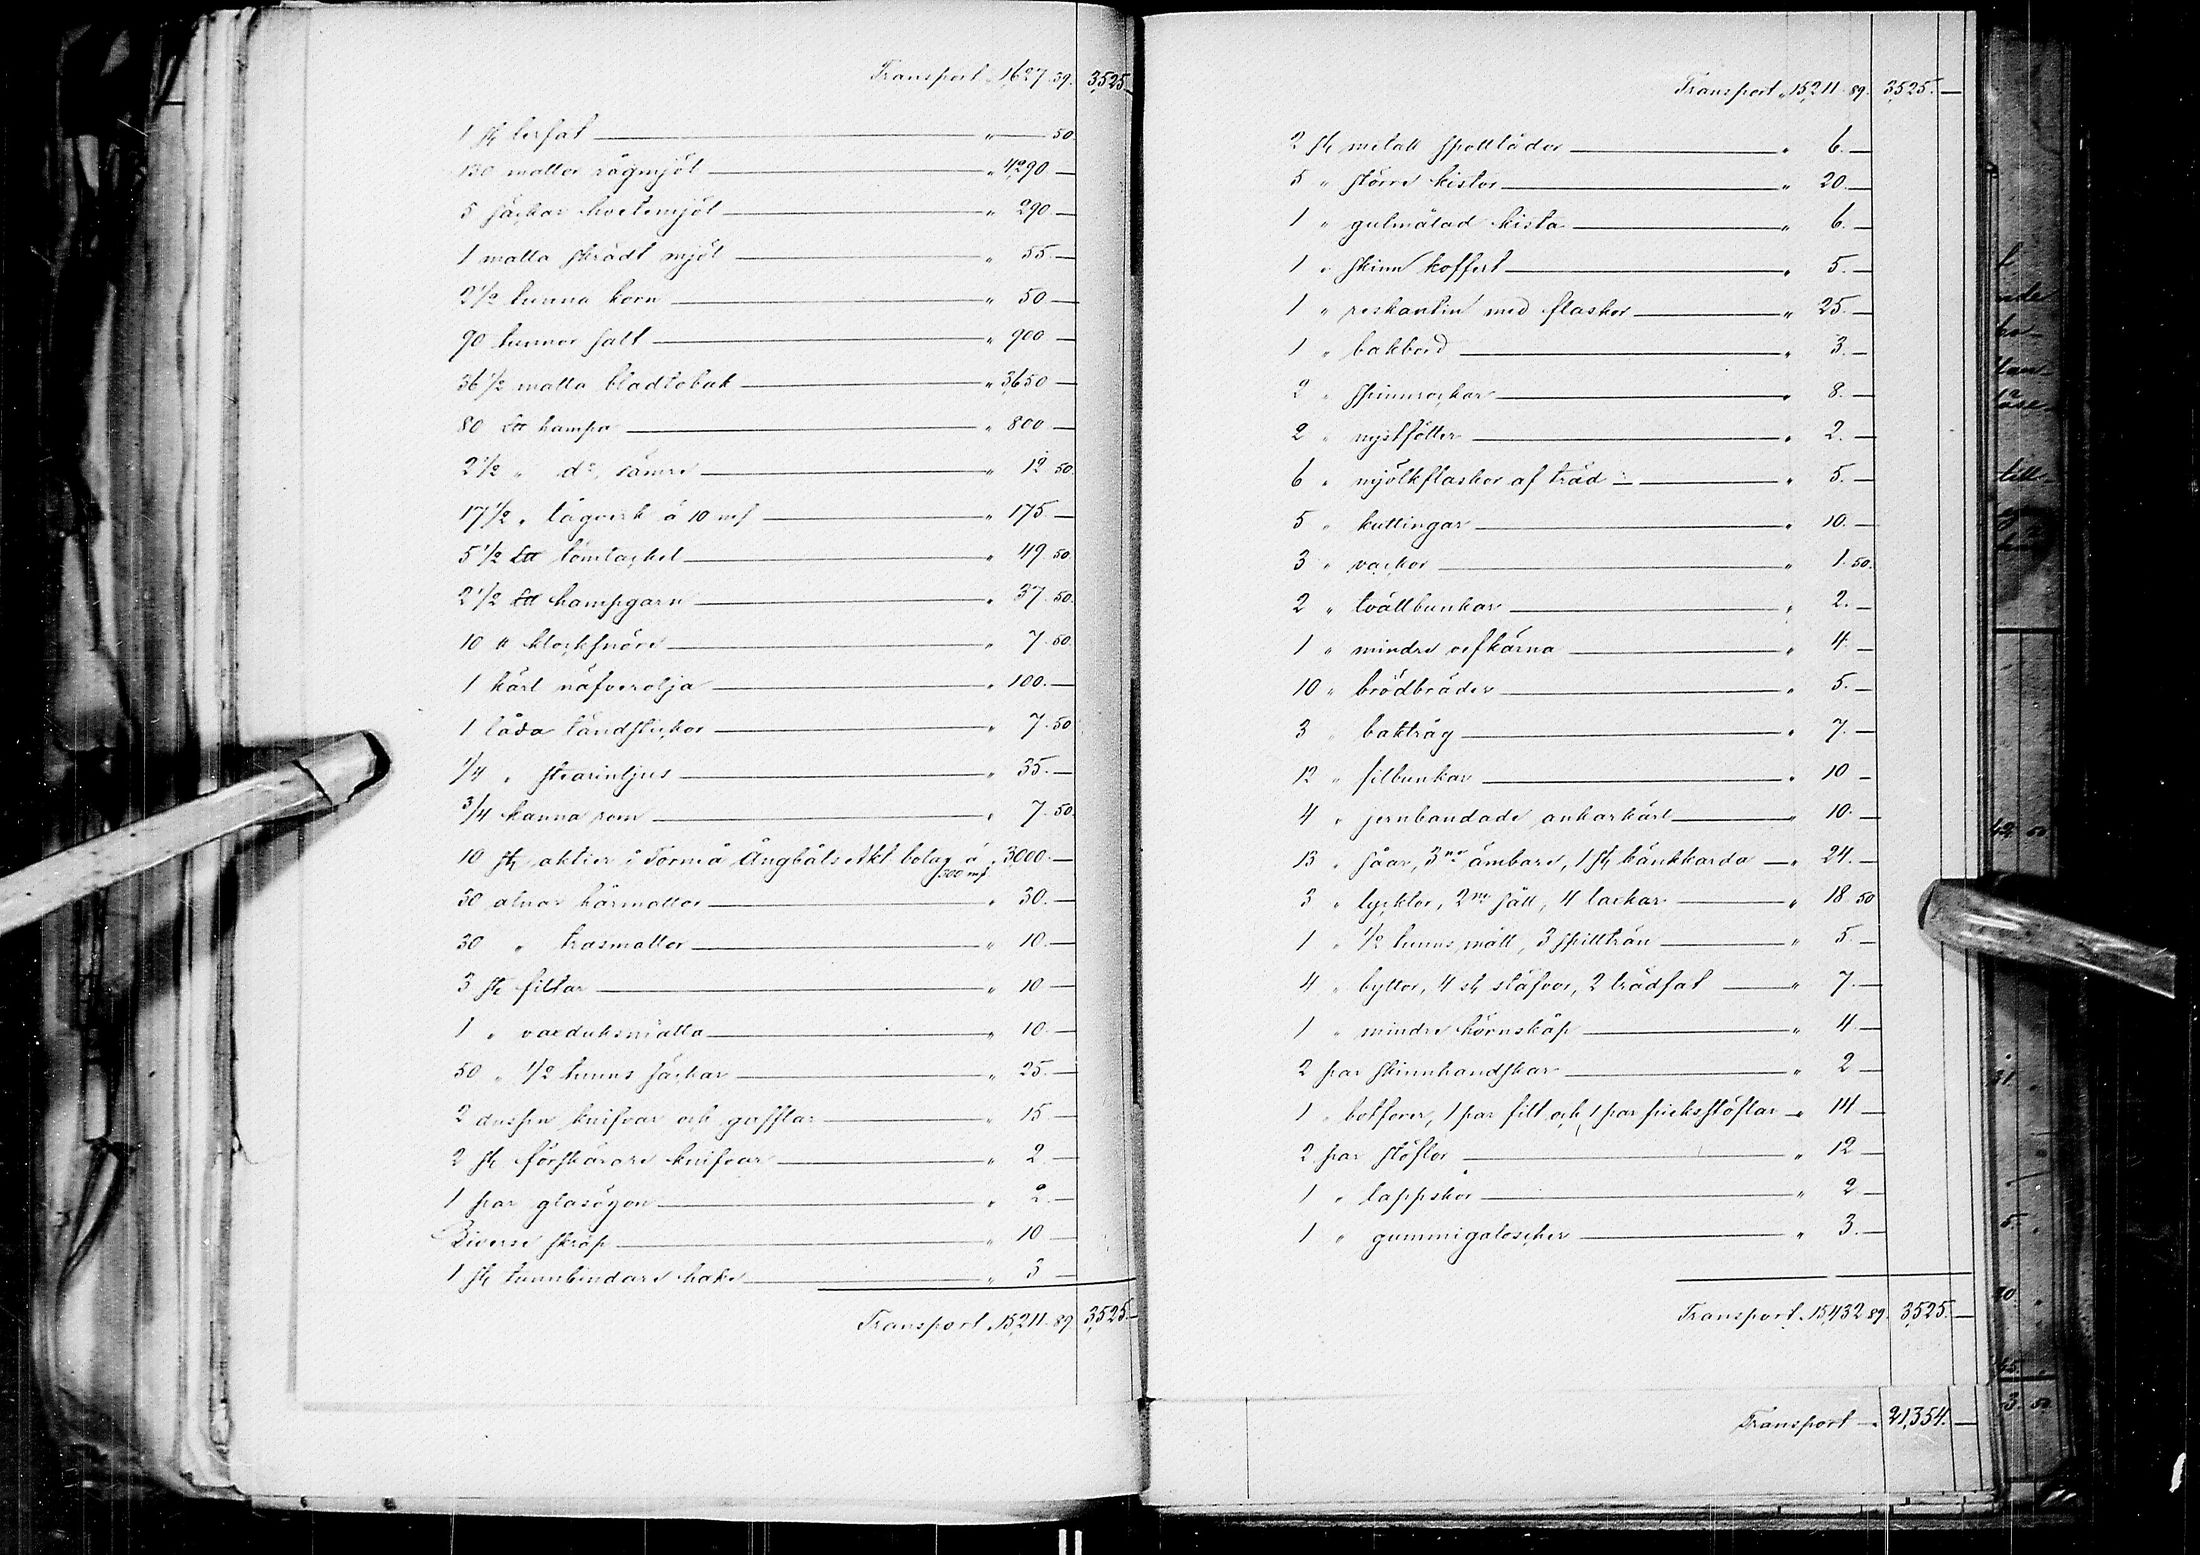 Transport „ 1,627. 39. 3,525. —
1 st lerfat — „ — 50
130 mattor rågmjöl — „ 4,290 —
5 säckar hvetemjöl — „ 290. —
1 matta skrädt mjöl — „ 55. —
2 1/2 tunna korn — „ 50 —
90 tunnor salt — „ 900 —
36 1/2 matta bladtobak — „ 3,650 —
80 L℔ hampa — „ 800 —
2 1/2 „ d:o, sämre — „ 12 50
17 1/2 „ tågverk á 10 mf — „ 175. —
5 1/2 L℔ tömtackel — „ 49 50
2 1/2 L℔ hampgarn — „ 37. 50.
10 ℔ klocksnöre — „ 7. 50.
1 kärl näfverolja — „ 100. —
1 låda tändstickor — „ 7. 50
1/4 „ stearinljus — „ 35. —
3/4 kanna rom — „ 7. 50
10 st aktier i Torneå Ångbåts Akt. bolag á „ 3000. —
300 mf
30 alnar hårmattor — „ 30. —
30 „ trasmattor — „ 10. —
3 st filtar — „ 10 —
1 „ vaxduksmatta — „ 10. —
50 „ 1/2 tunns säckar — „ 25. —
2 dussin knifvar och gafflar — „ 15 —
2 st förskärare knifvar — „ 2 —
1 par glasögon — „ 2. —
Diverse skräp — „ 10 —
1 st tunnbindare hake — „ 3 —
Transport „ 15,211. 89 3,525. —
Transport „ 15,211. 89. 3,525. —
2 st metall spottlådor — „ 6. —
5 „ större kistor — „ 20. —
1 „ gulmålad kista — „ 6. —
1 „ skinn koffert — „ 5. —
1 „ reskantin med flaskor — „ 25. —
1 „ bakbord — „ 3. —
2 „ spinnrockar — „ 8. —
2 „ nystfötter — „ 2. —
6 „ mjölkflaskor af träd — „ 5. —
5 „ kuttingar — „ 10. —
3 „ vackor — „ 1. 50.
2 „ tvättbunkar — „ 2. —
1 „ mindre vefkärna — „ 4. —
10 „ brödbräder — „ 5. —
3 „ baktråg — „ 7. —
12 „ filbunkar — „ 10 —
4 „ jernbandade ankarkärl — „ 10. —
13 „ såar, 3 ne ämbare, 1 st hänkkarda — „ 24. —
3 „ lycktor, 2 ne såll, 4 lackar — „ 18. 50
1 „ 1/2 tunns mått, 3 spilltrån — „ 5. —
4 „ byttor, 4 st stäfvor, 2 trädfat — „ 7. —
1 „ mindre hörnskåp — „ 4. —
2 par skinnhandskar — „ 2 —
1 „ botforer, 1 par filt och 1 par pieksstöflar — „ 14 —
2 par stöflor — „ 12 —
1 „ lappskor — „ 2 —
1 „ gummigaloscher — „ 3. —
Transport „ 15,432 89. 3,525. —
Transport — „ 21,354. —